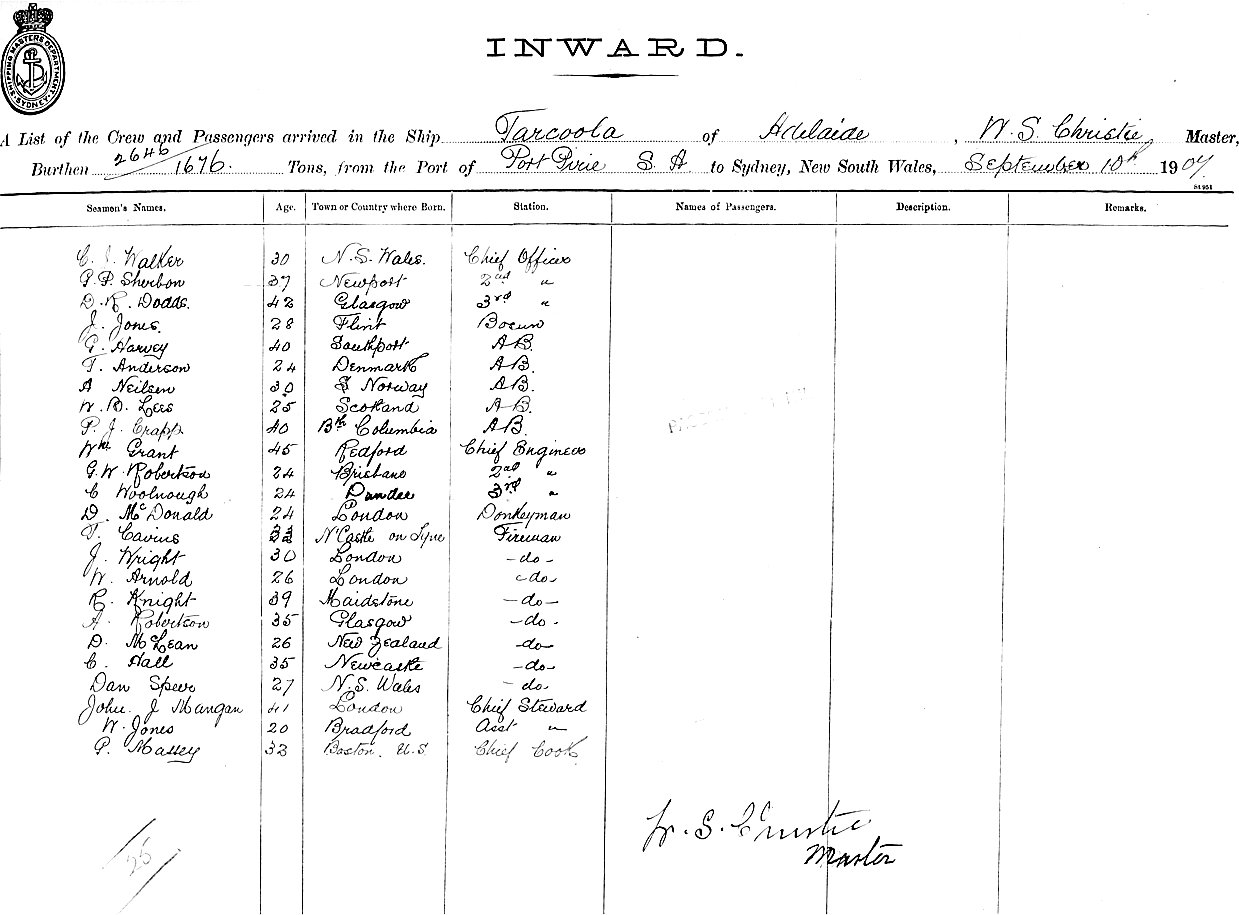 SHIPPING MASTERS DEPARTMENT SYDNEY
INWARD.
A List of the Crew and Passengers arrived in the Ship Tarcoola of Adelaide, W. S. Christie, Master,
Burthen 2646/1676. Tons, from the Port of Port Pirie S A to Sydney, New South Wales, September 10th 1907
Seamen's Names. Age. Town or Country where Born. Station. Names of Passengers. Description. Remarks.
Walker 30 N. S. Wales. Chief Officer
Sherbon 37 Newport 2nd "
D. R. Dodds. 42 Glasgow 3rd "
J. Jones. 28 Flint Bosun
G. Harvey 40 Southport A B.
T. Anderson 24 Denmark A B.
A Neilsen 30 Norway A B.
W. B. Lees 25 Scotland A B.
P. J. Crapp 40 Bth Columbia A B.
Wm Grant 45 Redford Chief Engineer
G. W. Robertson 24 Brisbane 2nd "
C Woolnough 24 Dundee 3rd "
D. McDonald 24 London Donkeyman
T. Cavins N'Castle on Tyne Fireman
J. Wright 30 London - do -
W. Arnold 26 London - do -
R. Knight 39 Maidstone - do -
A. Robertson 35 Glasgow - do -
D. McLean 26 New Zealand - do -
C. Hall 35 Newcastle - do -
Dan Speer 27 N. S. Wales - do -
John J Mangan 41 London Chief Steward
W. Jones 20 Bradford Asst "
P. Massey 33 Boston. U.S. Chief Cook
W. S. Christie
Master
25